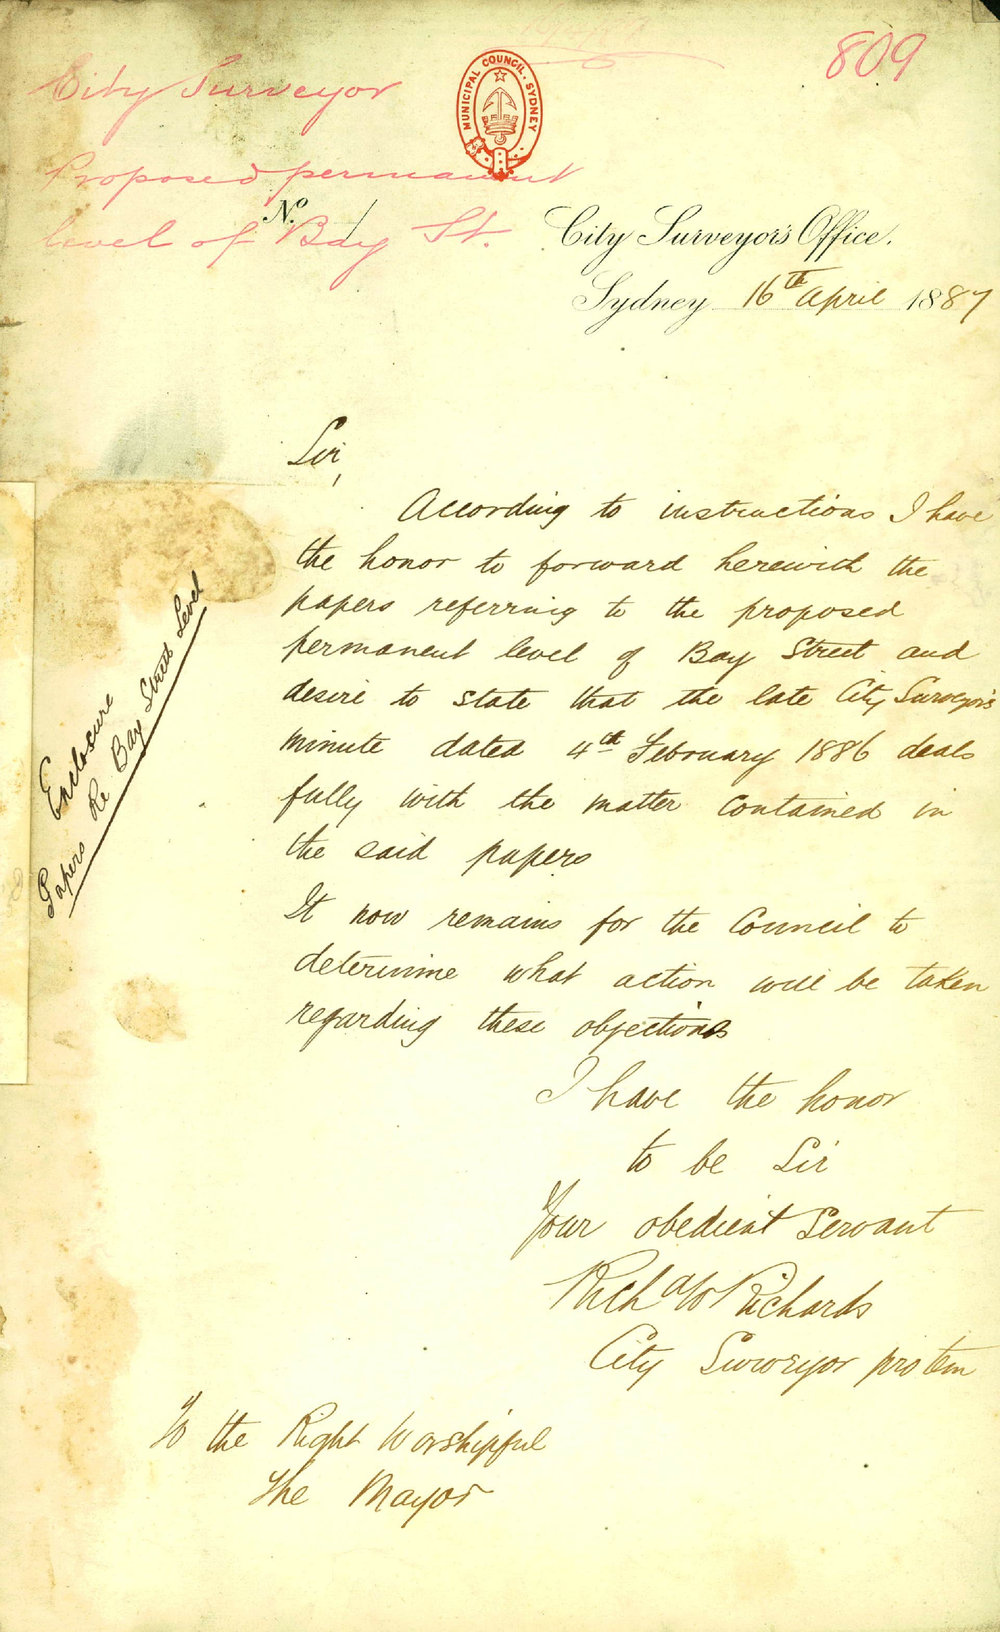 809
City Surveyor
Proposed permanent
level of Bay St.
MUNICIPAL COUNCIL. SYDNEY
No. /
City Surveyor's Office.
Sydney 16th April 1887
Sir,
According to instructions I have
the honor to forward herewith the
papers referring to the proposed
permanent level of Bay Street and
desire to state that the late City Surveyor's
minute dated 4th February 1886 deals
fully with the matter contained in
the said papers
It now remains for the Council to
determine what action will be taken
regarding these objections
I have the honor
to be Sir
Your obedient Servant
Richd W Richards
City Surveyor pro tem
To the Right Worshipful
The Mayor
Enclosure
Papers Re Bay Street Level